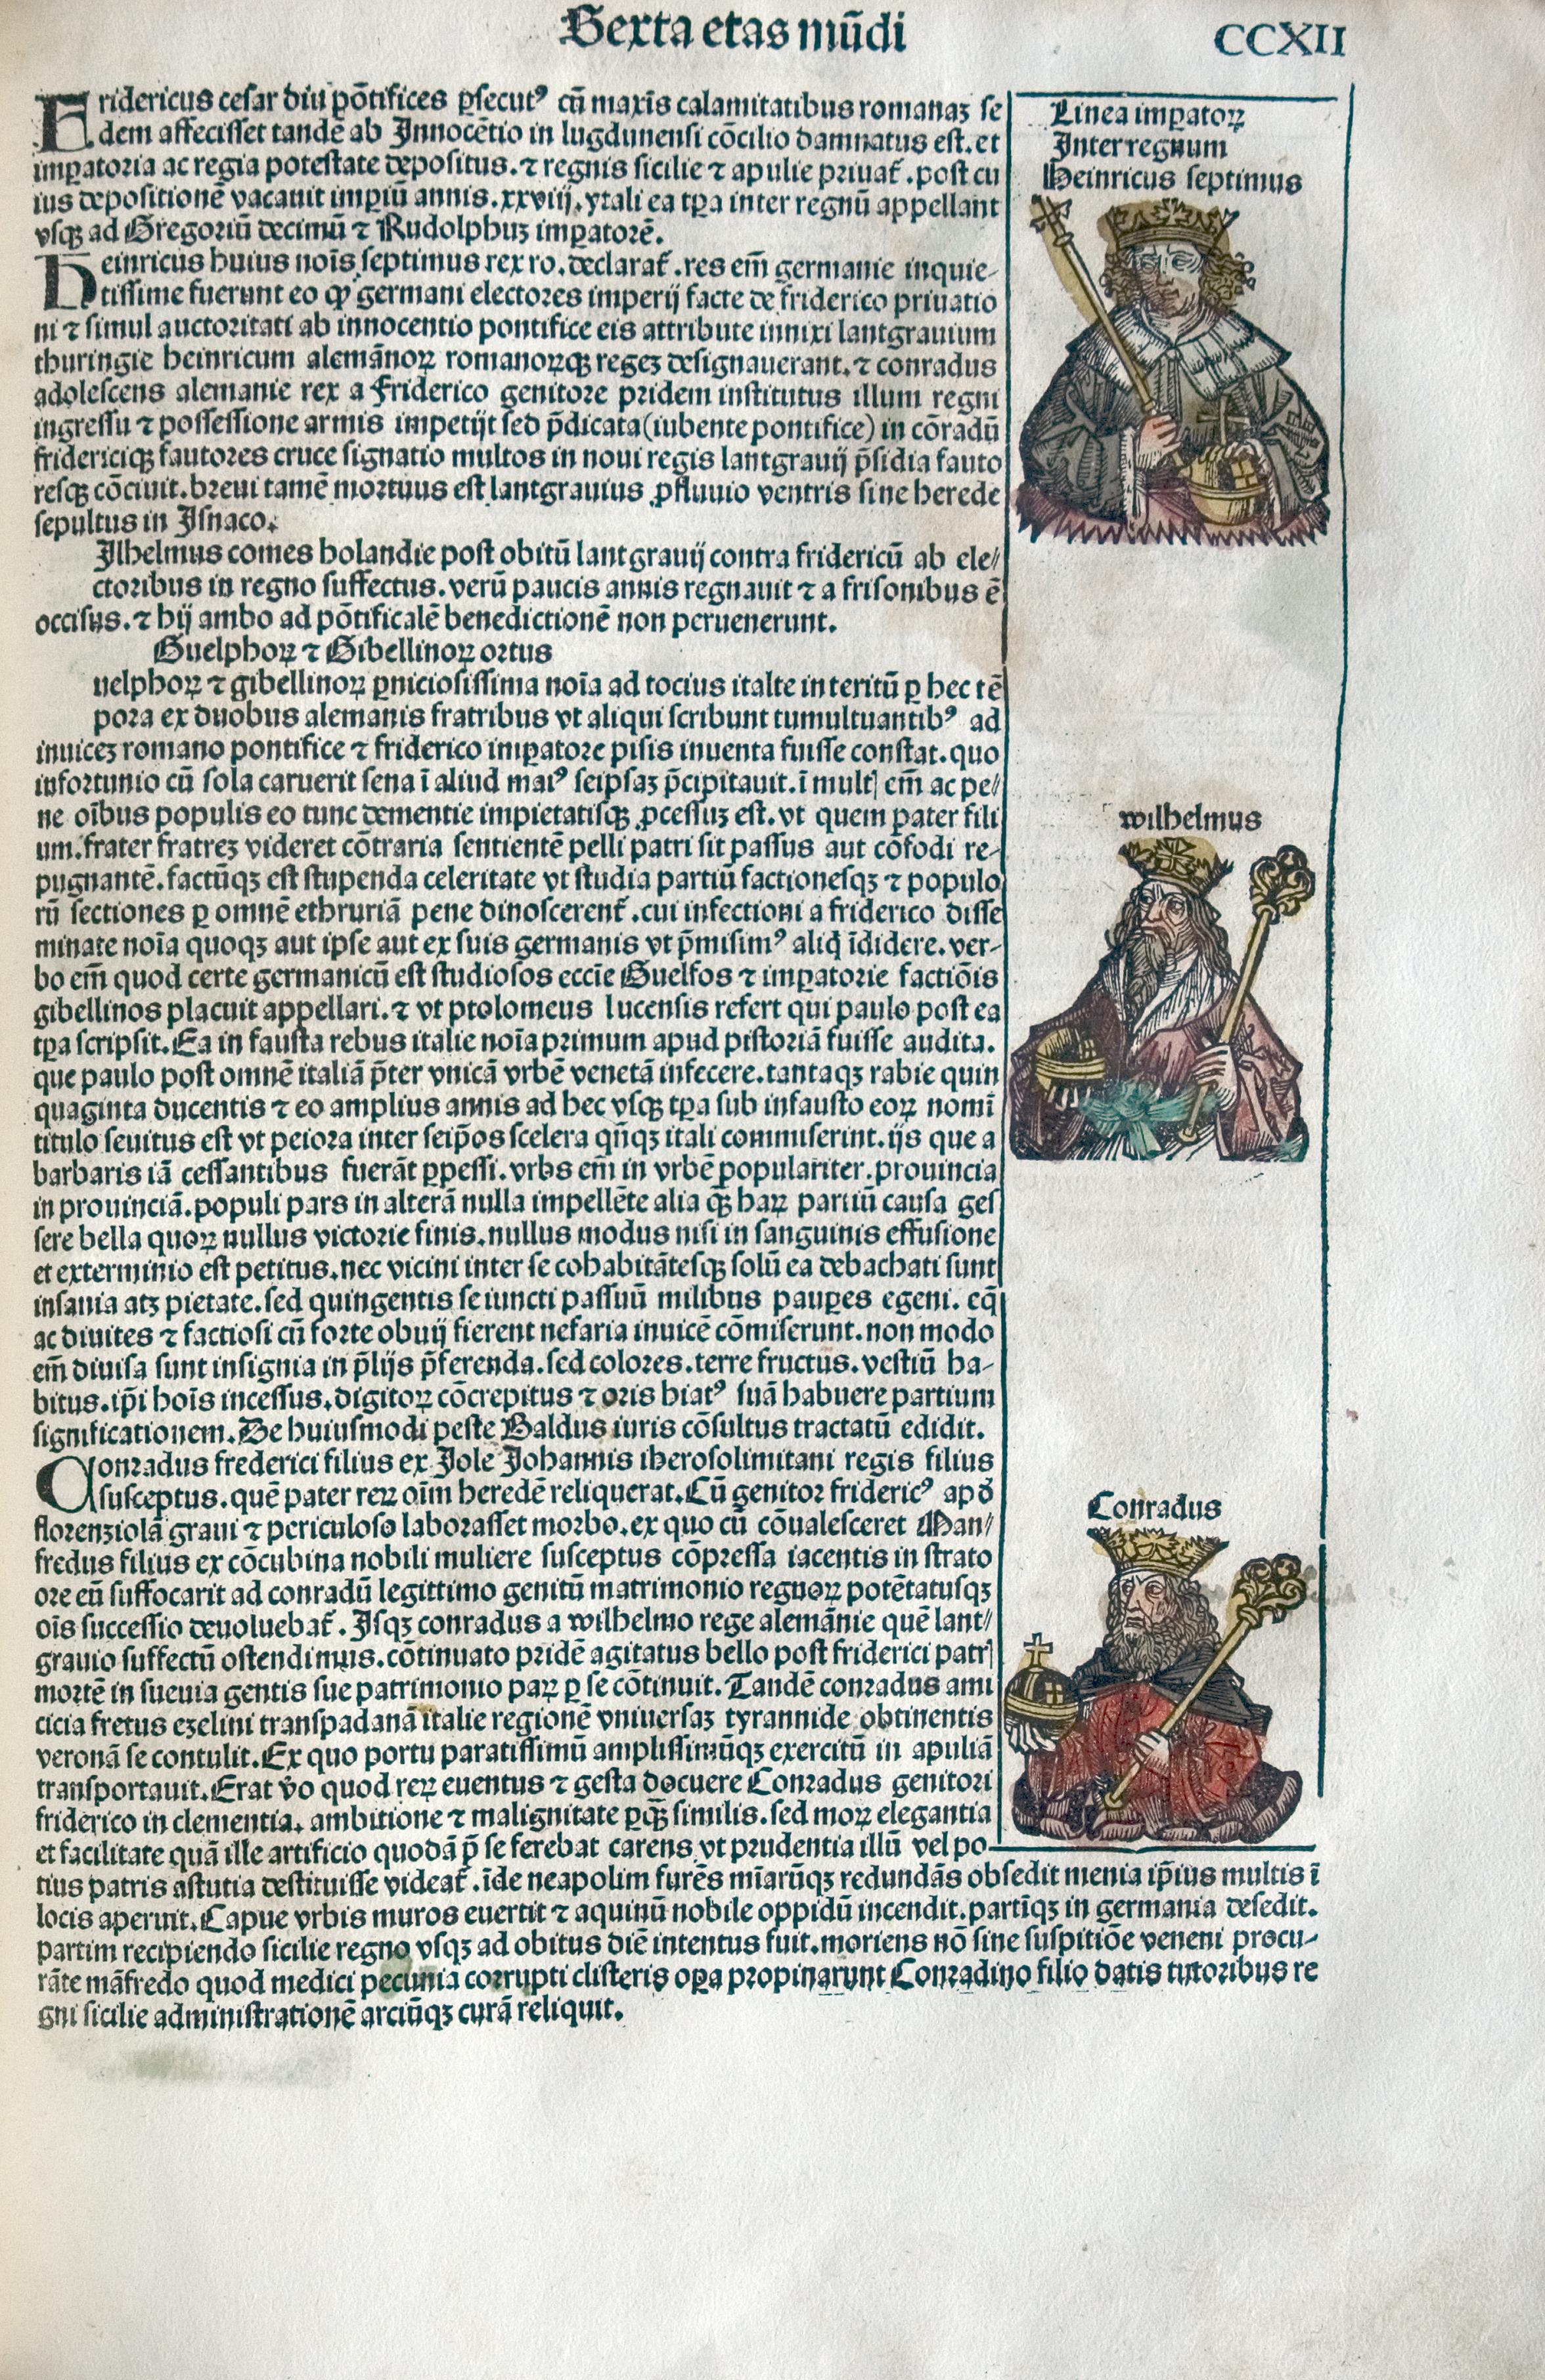 Sexta etas mũdi
CCXII
Fridericus cesar diu põtifices ꝑsecutꝰ cũ maxĩs calamitatibus romanaꝫ se
dem affecisset tandẽ ab Innocẽtio in lugdunensi cõcilio damnatus est. et
imꝑatoria ac regia potestate depositus. ⁊ regnis sicilie ⁊ apulie priuat᷑. post cu
ius depositionẽ vacauit imꝑiũ annis. xxviij. ytali ea tꝑa inter regnũ appellant
vsqꝫ ad Gregoriũ decimũ ⁊ Rudolphuꝫ imꝑatorẽ.
Heinricus huius noĩs septimus rex ro. declarat᷑. res em̃ germanie inquie-
tissime fuerunt eo ꝙ germani electores imperij facte de friderico priuatio
ni ⁊ simul auctoritati ab innocentio pontifice eis attribute innixi lantgrauium
thuringie heinricum alemãnoꝝ romanoꝝqꝫ regeꝫ designauerant. ⁊ conradus
adolescens alemanie rex a Friderico genitore pridem institutus illum regni
ingressu ⁊ possessione armis impetijt sed p̃dicata (iubente pontifice) in cõradũ
fridericiqꝫ fautores cruce signatio multos in noui regis lantgrauij p̃sidia fauto
resqꝫ cõciuit. breui tamẽ mortuus est lantgrauius ꝓfluuio ventris sine herede
sepultus in Isnaco.
Ilhelmus comes holandie post obitũ lantgrauij contra fridericũ ab ele/
ctoribus in regno suffectus. verũ paucis annis regnauit ⁊ a frisonibus ẽ
occisus. ⁊ hij ambo ad põtificalẽ benedictionẽ non peruenerunt.
Guelphoꝝ ⁊ Gibellinoꝝ ortus
uelphoꝝ ⁊ gibellinoꝝ ꝑniciosissima noĩa ad tocius italte interitũ ꝑ hec tẽ
pora ex duobus alemanis fratribus vt aliqui scribunt tumultuantibꝰ ad
inuiceꝫ romano pontifice ⁊ friderico imꝑatore pisis inuenta fuisse constat. quo
infortunio cũ sola caruerit sena ĩ aliud maiꝰ seipsaꝫ p̃cipitauit. ĩ multꝭ em̃ ac pe/
ne oĩbus populis eo tunc dementie impietatisqꝫ ꝓcessuꝫ est. vt quem pater fili
um. frater fratreꝫ videret cõtraria sentientẽ pelli patri sit passus aut cõfodi re-
pugnantẽ. factũqꝫ est stupenda celeritate vt studia partiũ factionesqꝫ ⁊ populo
rũ sectiones ꝑ omnẽ ethruriã pene dinoscerent᷑. cui infectioni a friderico disse
minate noĩa quoqꝫ aut ipse aut ex suis germanis vt p̃misimꝰ aliq̃ ĩdidere. ver-
bo em̃ quod certe germanicũ est studiosos eccĩe Guelfos ⁊ imꝑatorie factiõis
gibellinos placuit appellari. ⁊ vt ptolomeus lucensis refert qui paulo post ea
tꝑa scripsit. Ea in fausta rebus italie noĩa primum apud pistoriã fuisse audita.
que paulo post omnẽ italiã p̃ter vnicã vrbẽ venetã infecere. tantaqꝫ rabie quin
quaginta ducentis ⁊ eo amplius annis ad hec vsqꝫ tꝑa sub infausto eoꝝ nomĩ
titulo seuitus est vt peiora inter seip̃os scelera qñqꝫ itali commiserint. ijs que a
barbaris iã cessantibus fuerãt ꝑpessi. vrbs em̃ in vrbẽ populariter. prouincia
in prouinciã. populi pars in alterã nulla impellẽte alia q̃ꝫ haꝝ partiũ causa ges
sere bella quoꝝ nullus victorie finis. nullus modus nisi in sanguinis effusione
et exterminio est petitus. nec vicini inter se cohabitãtesqꝫ solũ ea debachati sunt
insania atꝫ pietate. sed quingentis seiuncti passuũ milibus pauꝑes egeni. eq̃
ac diuites ⁊ factiosi cũ forte obuij fierent nefaria inuicẽ cõmiserunt. non modo
em̃ diuisa sunt insignia in p̃lijs p̃ferenda. sed colores. terre fructus. vestiũ ha-
bitus. ip̃i hoĩs incessus. digitoꝝ cõcrepitus ⁊ oris hiatꝰ suã habuere partium
significationem. De huiusmodi peste Baldus iuris cõsultus tractatũ edidit.
Conradus frederici filius ex Jole Johannis iherosolimitani regis filius
susceptus. quẽ pater reꝝ oĩm heredẽ reliquerat. Cũ genitor fridericꝰ apđ
florenziolã graui ⁊ periculoso laborasset morbo. ex quo cũ cõualesceret Man/
fredus filius ex cõcubina nobili muliere susceptus cõpressa iacentis in strato
ore eũ suffocarit ad conradũ legittimo genitũ matrimonio regnoꝝ potẽtatusqꝫ
oĩs successio deuoluebat᷑. Isqꝫ conradus a wilhelmo rege alemãnie quẽ lant/
grauio suffectũ ostendimus. cõtinuato pridẽ agitatus bello post friderici patrꝭ
mortẽ in sueuia gentis sue patrimonio paꝝ ꝑ se cõtinuit. Tandẽ conradus ami
cicia fretus ezelini transpadanã italie regionẽ vniuersaꝫ tyrannide obtinentis
veronã se contulit. Ex quo portu paratissimũ amplissimũqꝫ exercitũ in apuliã
transportauit. Erat v̾o quod reꝝ euentus ⁊ gesta docuere Conradus genitori
friderico in clementia. ambitione ⁊ malignitate ꝑq̃ꝫ similis. sed moꝝ elegantia
et facilitate quã ille artificio quodã p̃ se ferebat carens vt prudentia illũ vel po-
tius patris astutia destituisse videat᷑. ĩde neapolim furẽs mĩarũqꝫ redundãs obsedit menia ip̃ius multis ĩ
locis aperuit. Capue vrbis muros euertit ⁊ aquinũ nobile oppidũ incendit. partĩqꝫ in germania desedit.
partim recipiendo sicilie regno vsqꝫ ad obitus diẽ intentus fuit. moriens nõ sine suspitiõe veneni procu-
rãte mãfredo quod medici pecunia corrupti clisteris oꝑa propinarunt Conradino filio datis tutoribus re
gni sicilie administrationẽ arciũqꝫ curã reliquit.
Linea imꝑatoꝝ
Interregnum
Heinricus septimus
wilhelmus
Conradus